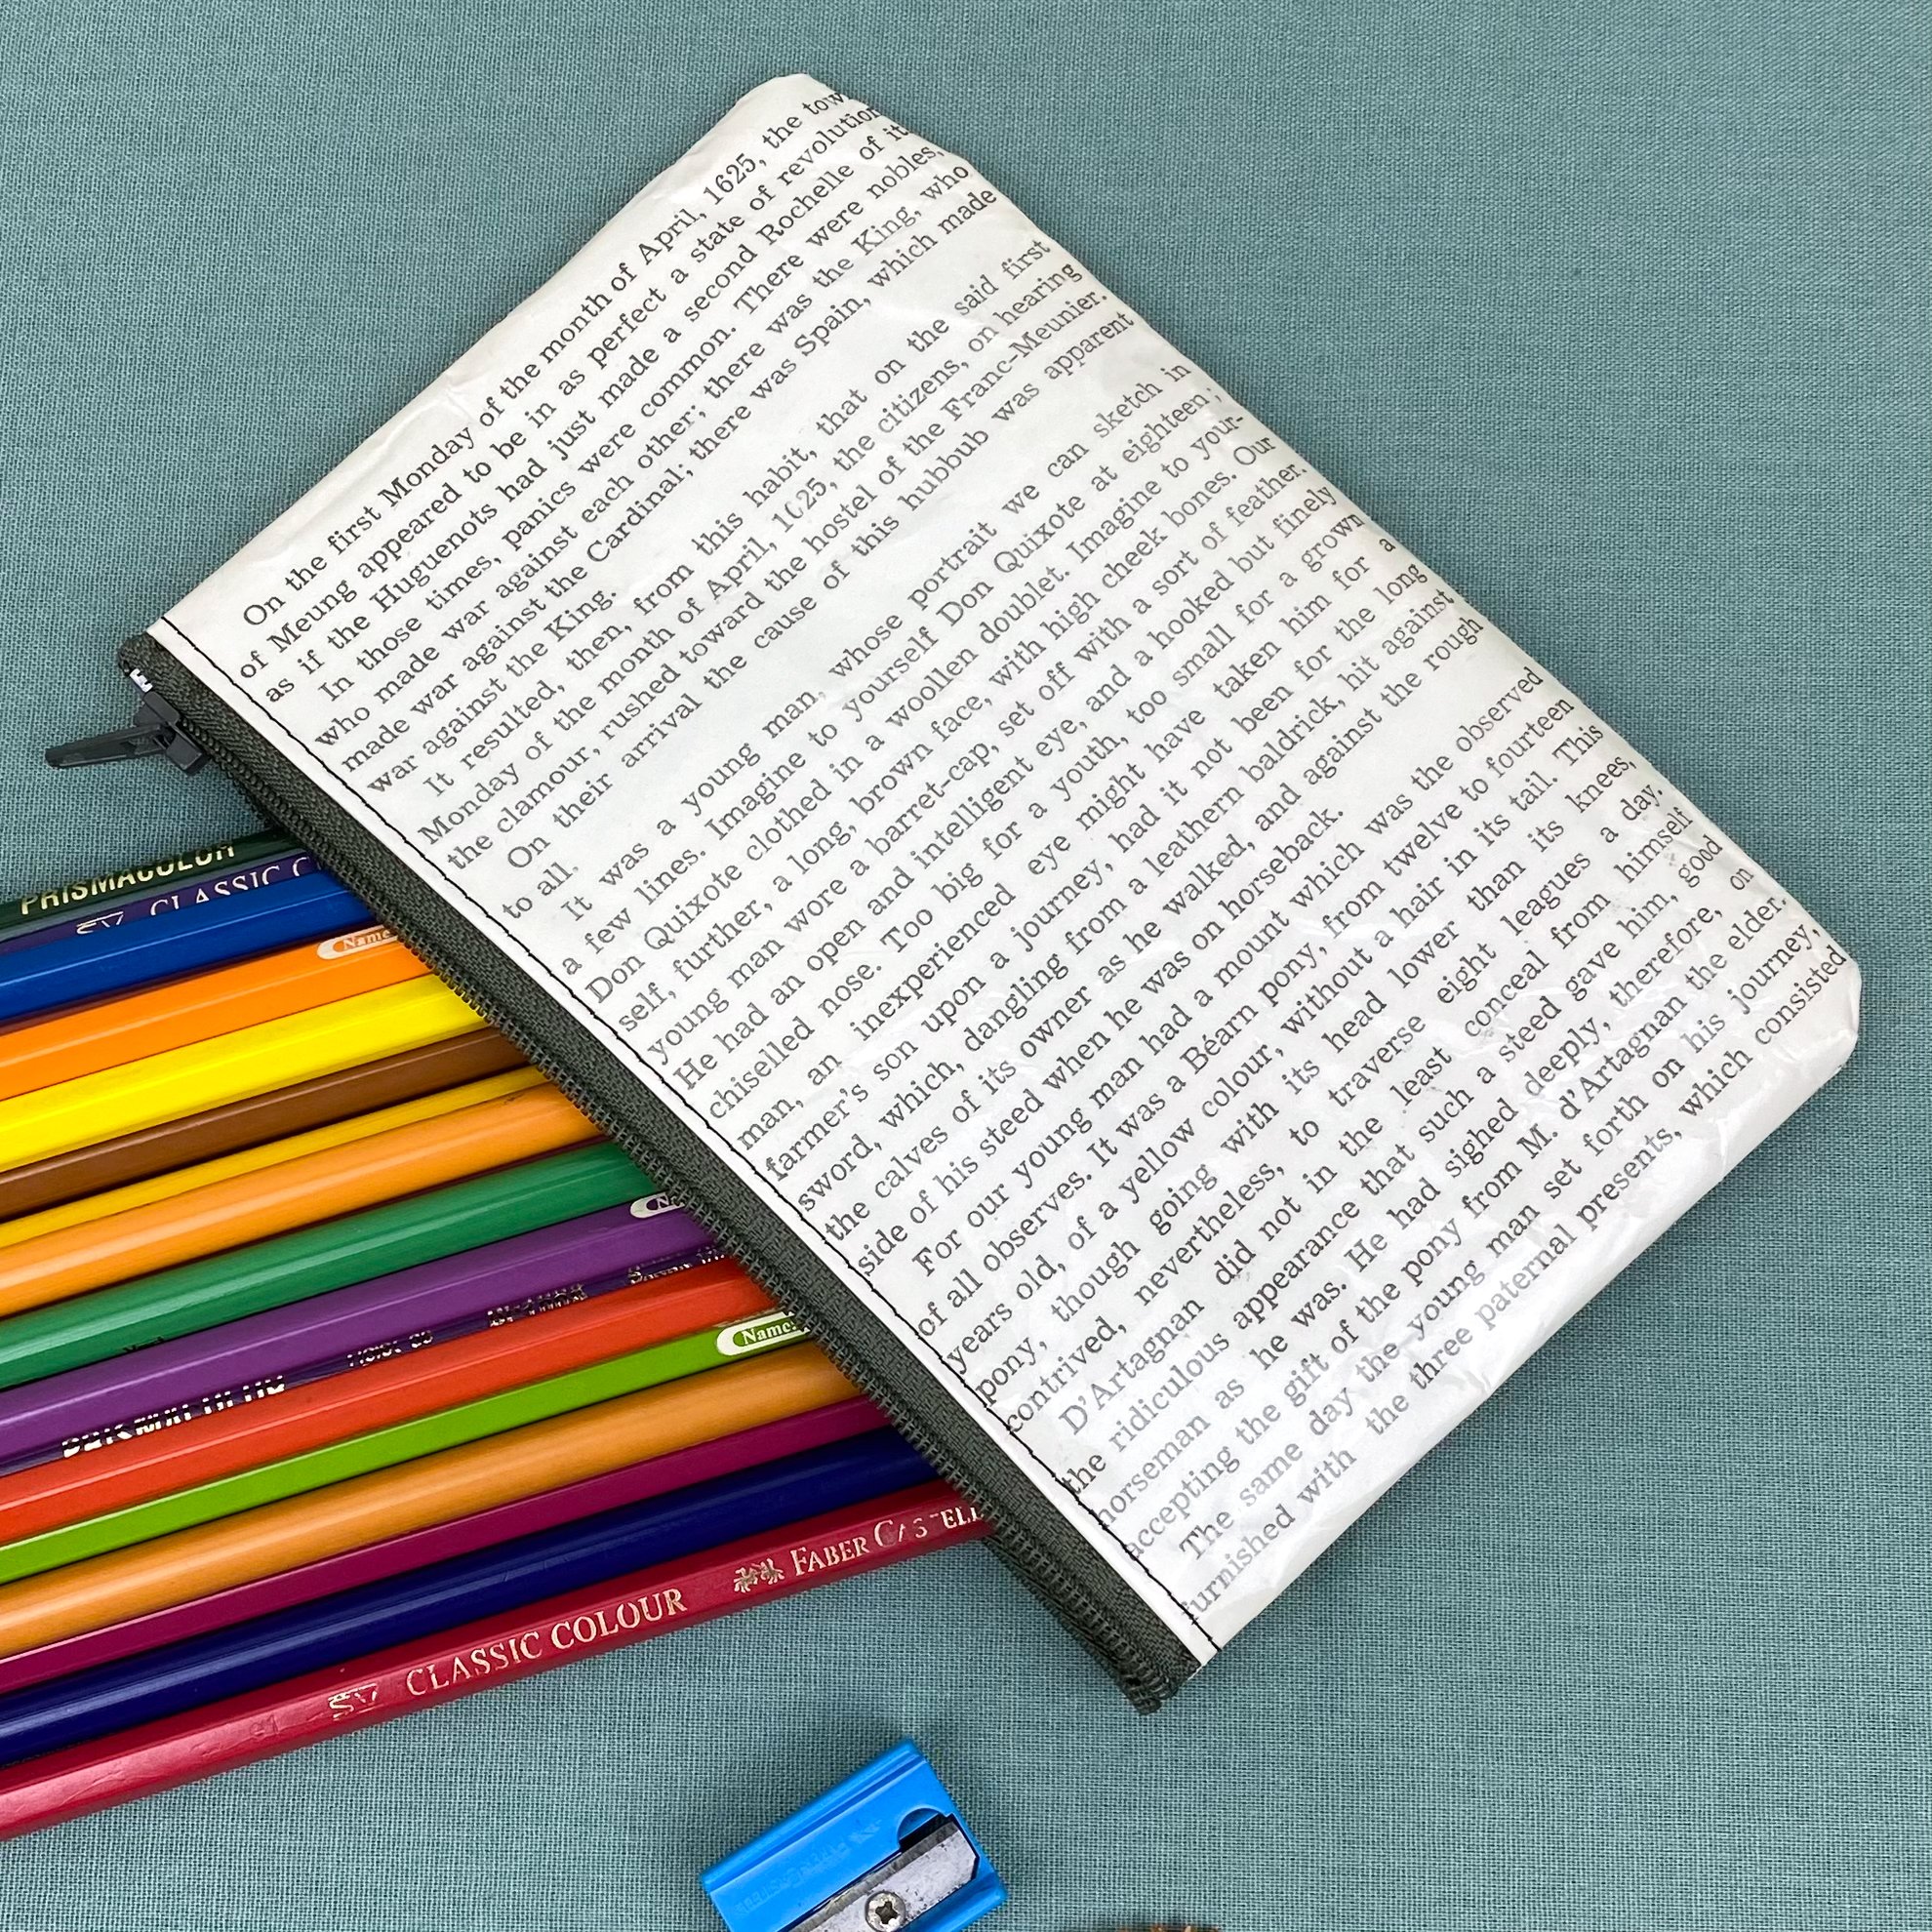 On the first Monday of the month of April, 1625, the tow
of Meung appeared to be in as perfect a state of revolution
as if the Huguenots had just made a second Rochelle of it.
In those times, panics were common. There were nobles,
who made war against each other; there was the King, who
made war against the Cardinal; there was Spain, which made
war against the King.
It resulted, then, from this habit, that on the said first
Monday of the month of April, 1625, the citizens, on hearing
the clamour, rushed toward the hostel of the Franc-Meunier.
On their arrival the cause of this hubbub was apparent
to all.
It was a young man, whose portrait we can sketch in
a few lines. Imagine to yourself Don Quixote at eighteen;
Don Quixote clothed in a woollen doublet. Imagine to your-
self, further, a long, brown face, with high cheek bones. Our
young man wore a barret-cap, set off with a sort of feather.
He had an open and intelligent eye, and a hooked but finely
chiselled nose. Too big for a youth, too small for a grown
man, an inexperienced eye might have taken him for a
farmer's son upon a journey, had it not been for the long
sword, which, dangling from a leathern baldrick, hit against
the calves of its owner as he walked, and against the rough
side of his steed when he was on horseback.
For our young man had a mount which was the observed
of all observes. It was a Béarn pony, from twelve to fourteen
years old, of a yellow colour, without a hair in its tail. This
pony, though going with its head lower than its knees,
contrived, nevertheless, to traverse eight leagues a day.
D'Artagnan did not in the least conceal from himself
the ridiculous appearance that such a steed gave him, good
horseman as he was. He had sighed deeply, therefore, on
accepting the gift of the pony from M. d'Artagnan the elder.
The same day the young man set forth on his journey,
furnished with the three paternal presents, which consisted
PRISMACOLOR
CLASSIC C
Name
Name:
CLASSIC COLOUR FABER CASTELL